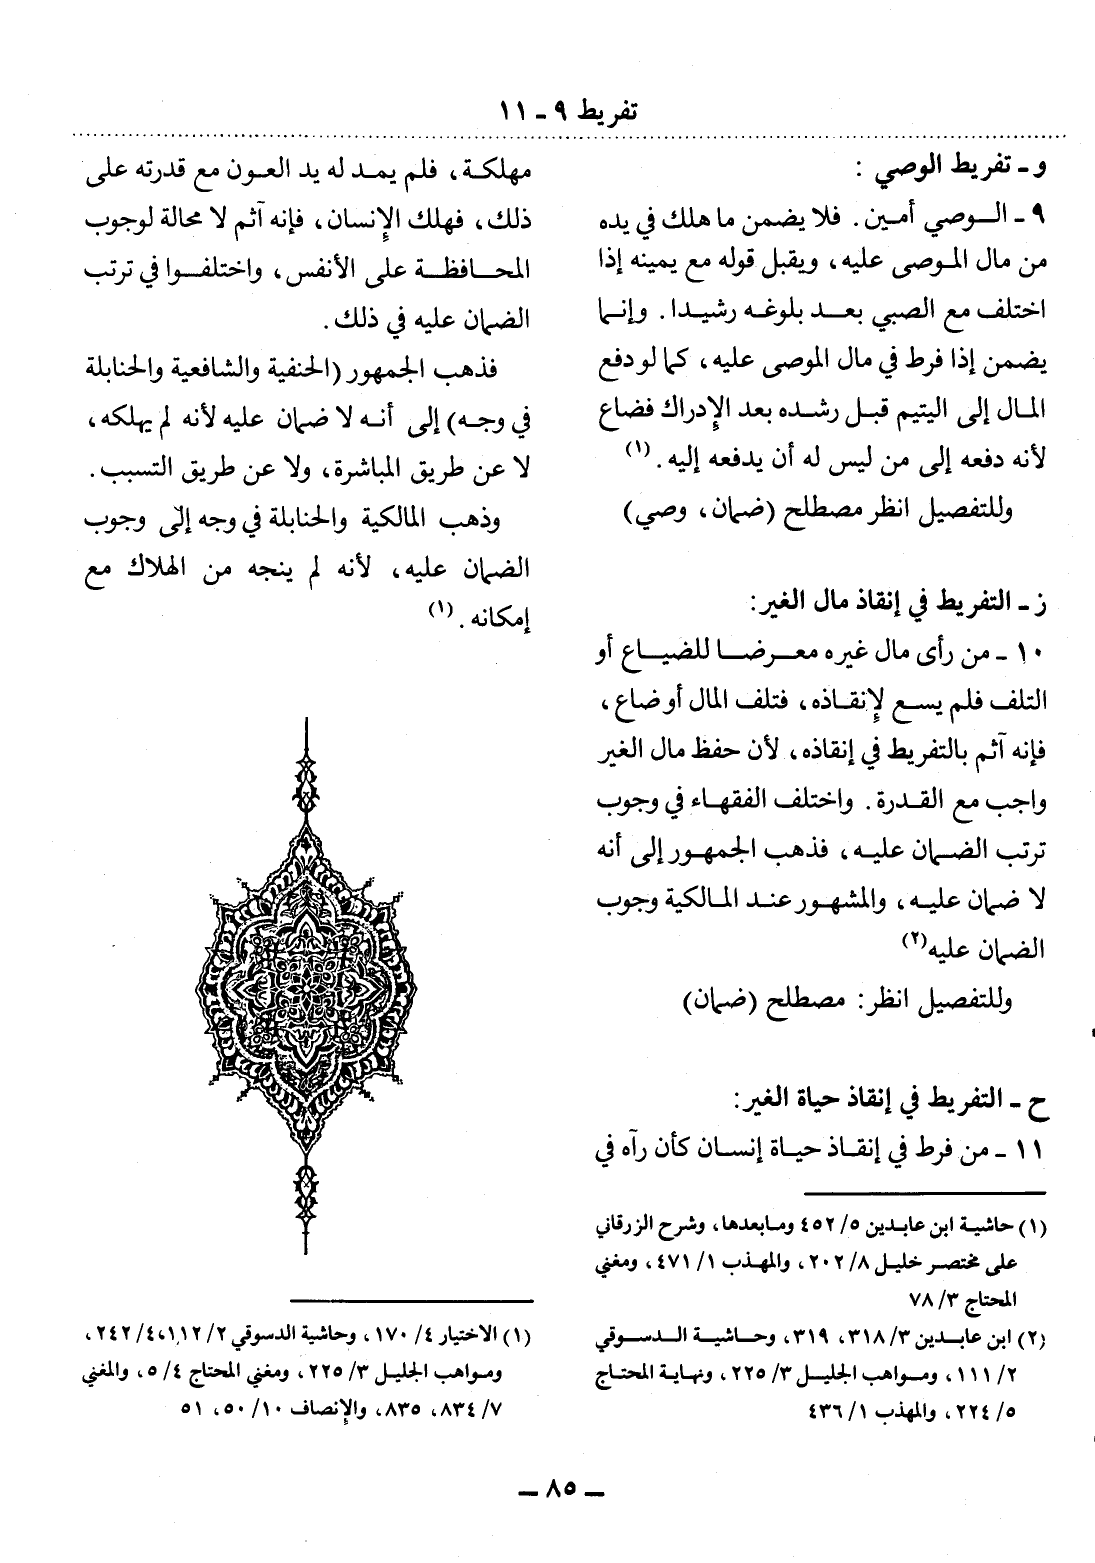 تفريط ٩ - ١١
و - تفريط الوصي :
٩ - الوصي أمين . فلا يضمن ما هلك في يده
من مال الموصى عليه، ويقبل قوله مع يمينه إذا
اختلف مع الصبي بعد بلوغه رشيدا . وإنما
يضمن إذا فرط في مال الموصى عليه، كما لو دفع
المال إلى اليتيم قبل رشده بعد الإدراك فضاع
لأنه دفعه إلى من ليس له أن يدفعه إليه . (١)
وللتفصيل انظر مصطلح (ضمان، وصي)
ز - التفريط في إنقاذ مال الغير:
١٠ - من رأى مال غيره معرضا للضياع أو
التلف فلم يسع لإنقاذه، فتلف المال أو ضاع،
فإنه آثم بالتفريط في إنقاذه، لأن حفظ مال الغير
واجب مع القدرة . واختلف الفقهاء في وجوب
ترتب الضمان عليه، فذهب الجمهور إلى أنه
لا ضمان عليه، والمشهور عند المالكية وجوب
الضمان عليه (٢)
وللتفصيل انظر: مصطلح (ضمان)
ح - التفريط في إنقاذ حياة الغير:
١١ - من فرط في إنقاذ حياة إنسان كأن رآه في
(١) حاشية ابن عابدين ٥/ ٤٥٢ ومابعدها، وشرح الزرقاني
على مختصر خليل ٨/ ٢٠٢، والمهذب ١/ ٤٧١، ومغني
المحتاج ٣/ ٧٨
(٢) ابن عابدين ٣/ ٣١٨، ٣١٩، وحاشية الدسوقي
٢/ ١١١، ومواهب الجليل ٣/ ٢٢٥، ونهاية المحتاج
٥/ ٢٢٤، والمهذب ١/ ٤٣٦
مهلكة، فلم يمد له يد العون مع قدرته على
ذلك، فهلك الإنسان، فإنه آثم لا محالة لوجوب
المحافظة على الأنفس، واختلفوا في ترتب
الضمان عليه في ذلك .
فذهب الجمهور (الحنفية والشافعية والحنابلة
في وجه) إلى أنه لا ضمان عليه لأنه لم يهلكه،
لا عن طريق المباشرة، ولا عن طريق التسبب .
وذهب المالكية والحنابلة في وجه إلى وجوب
الضمان عليه، لأنه لم ينجه من الهلاك مع
إمكانه . (١)
(١) الاختيار ٤/ ١٧٠، وحاشية الدسوقي ٢/ ١١٢، ٤/ ٢٤٢،
ومواهب الجليل ٣/ ٢٢٥، ومغني المحتاج ٤/ ٥، والمغني
٧/ ٨٣٤، ٨٣٥، والإنصاف ١٠/ ٥٠، ٥١
ـ ٨٥ ـ